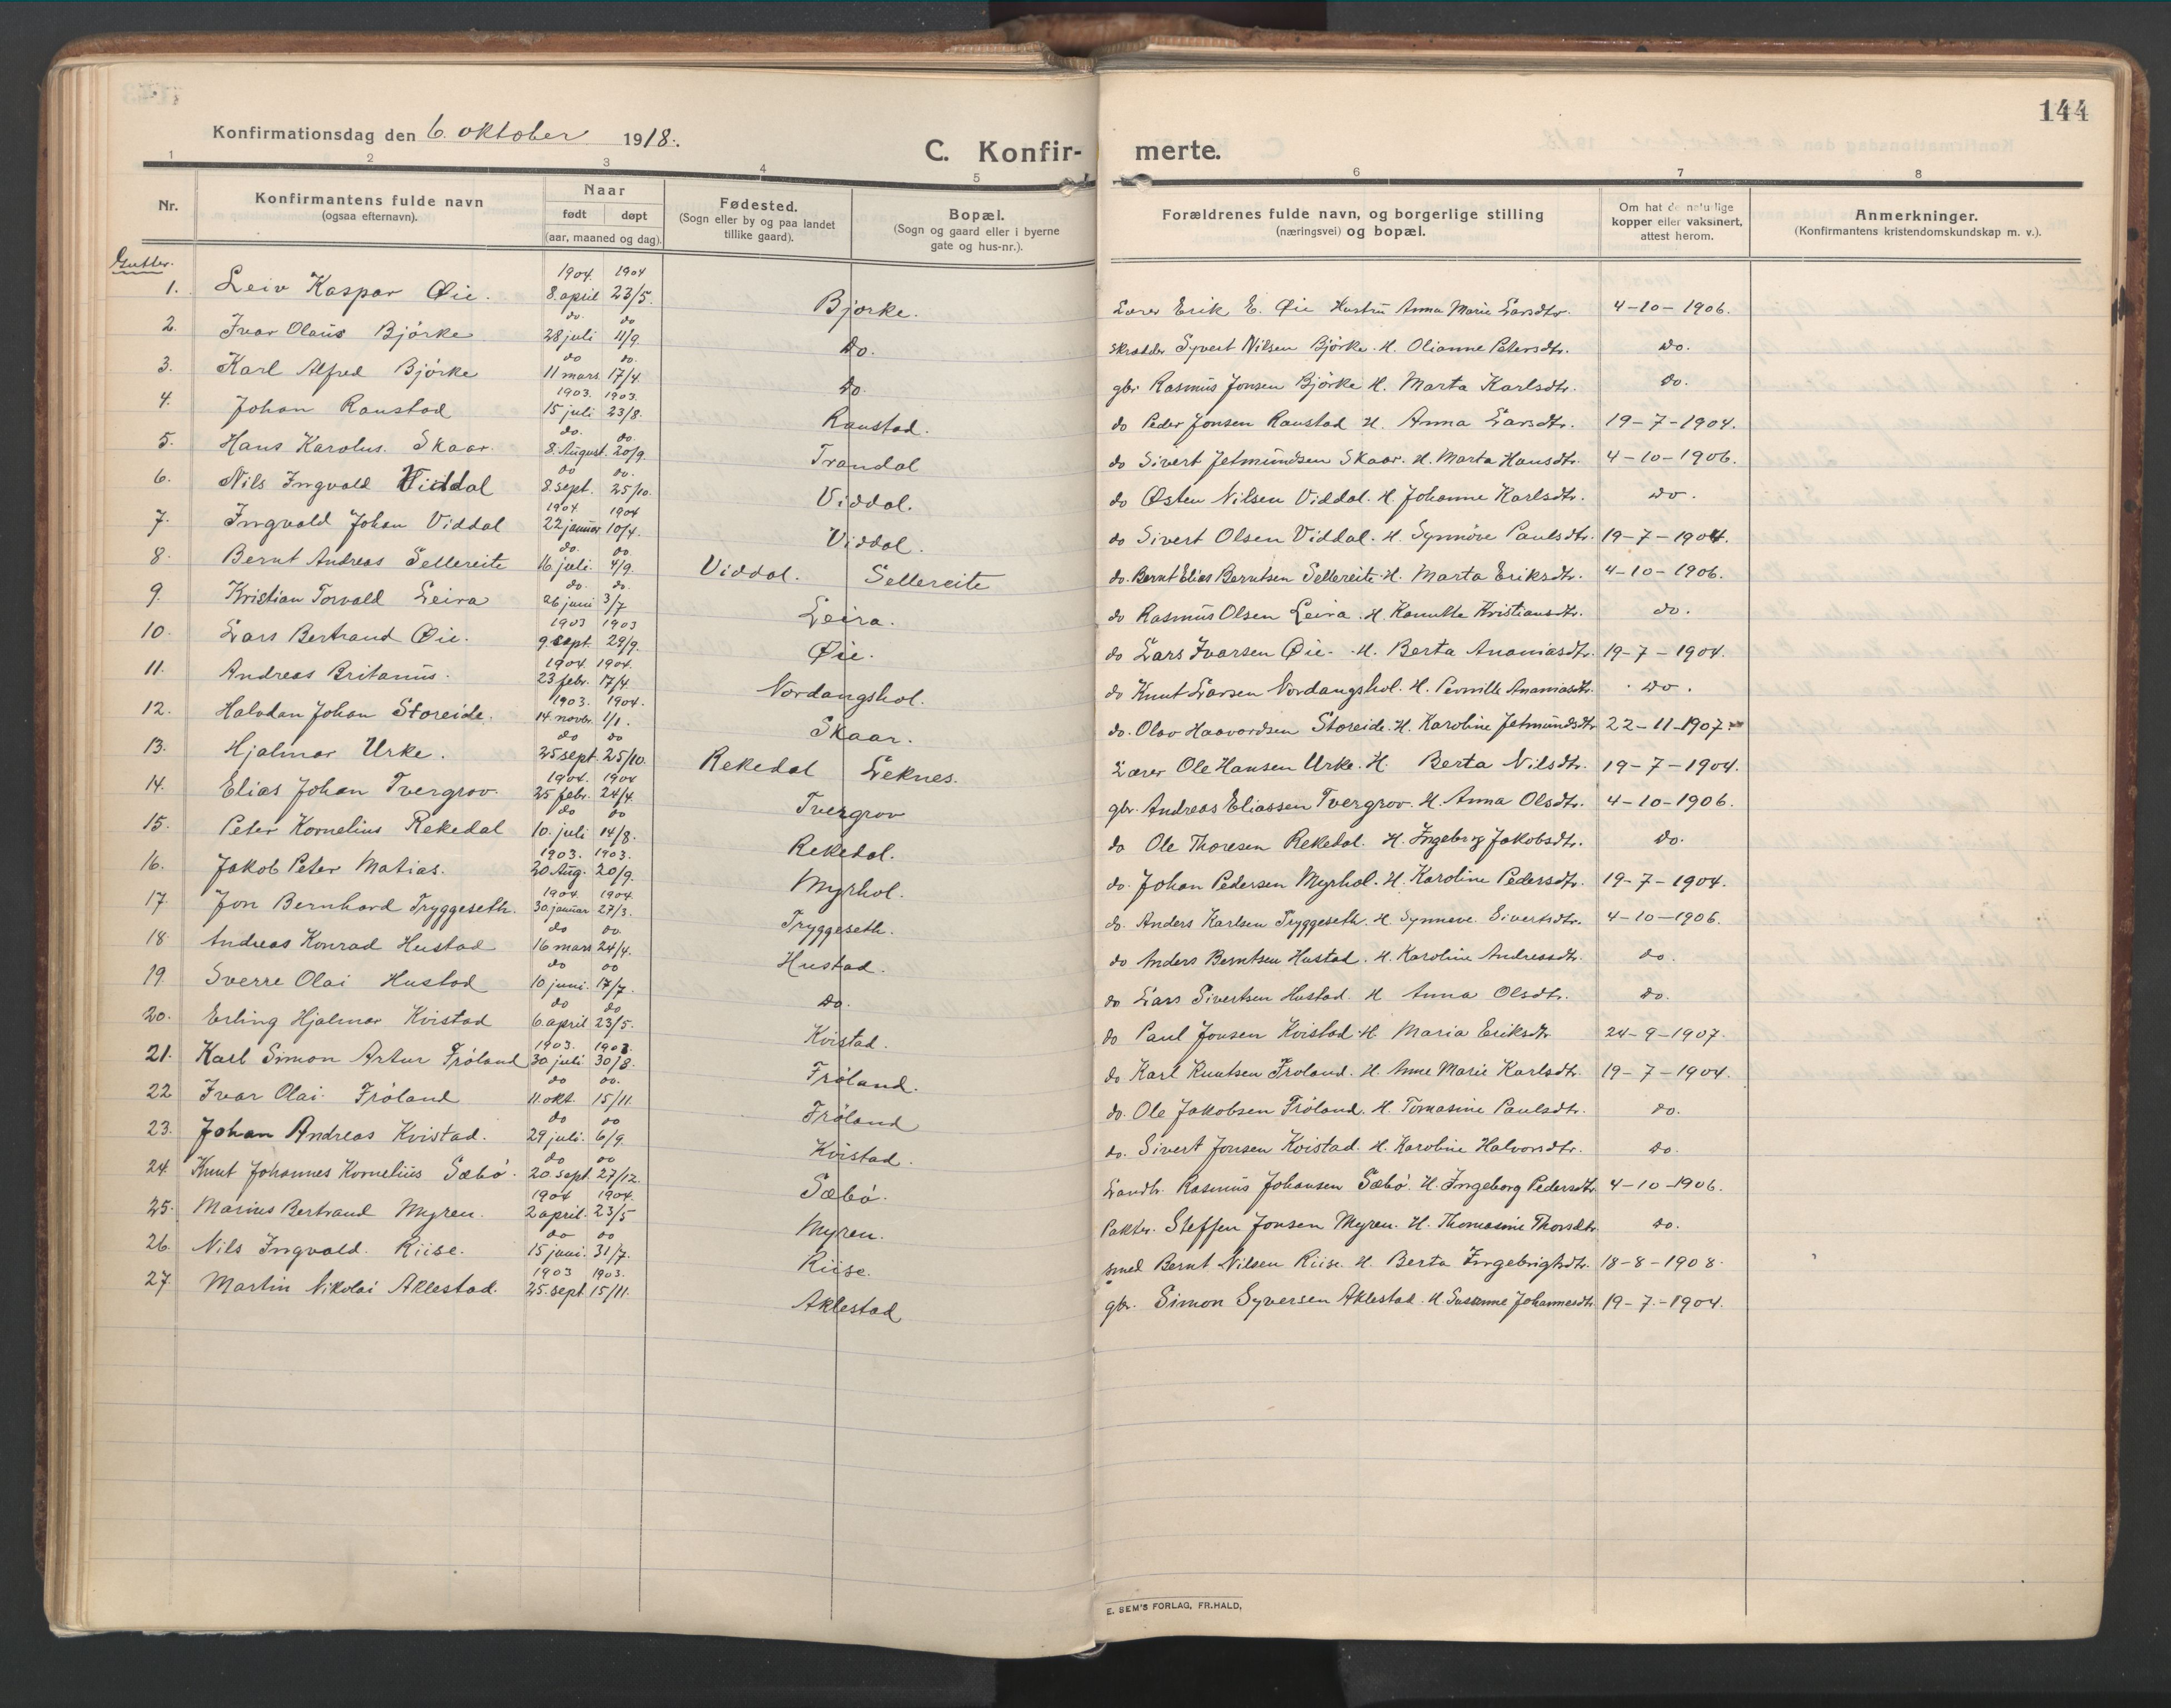 144
Konfirmationsdag den 6. oktober 1918.
C. Konfir- merte.
1 2 3 4 5 6 7 8
Nr. | Konfirmantens fulde navn (ogsaa efternavn). | Naar født døpt (aar, maaned og dag). | Fødested. (Sogn eller by og paa landet tillike gaard). | Bopæl. (Sogn og gaard eller i byerne gate og hus-nr.). | Forældrenes fulde navn, og borgerlige stilling (næringsvei) og bopæl. | Om hat de naturlige kopper eller vaksinert, attest herom. | Anmerkninger. (Konfirmantens kristendomskundskap m. v.).
Gutter.
1. Leiv Kaspar Øie. 1904. 8. april 1904 23/5. Bjørke. Lærer Erik E. Øie Hustru Anna Marie Larsdtr. 4-10-1906.
2. Ivar Olaus Bjørke do. 28 juli do 11/9 do. Skrædder Syvert Nilsen Bjørke. H. Olianne Petersdtr. do.
3. Karl Alfred Bjørke do 11 mars do. 17/4. do. gbr. Rasmus Jonsen Bjørke H. Marta Karlsdtr. do.
4. Johan Raustad 1903. 15 juli 1903. 23/8. Raustad. do Peder Jonsen Raustad H. Anna Larsdtr. 19-7-1904.
5. Hans Karolus. Skaar. do. 8. August. do. 20/9. Trandal do Sivert Jetmundsen Skaar. H. Marta Hansdtr. 4-10-1906.
6. Nils Ingvald Viddal do 8. sept. do. 25/10. Viddal. do Østen Nilsen Viddal. H. Johanne Karlsdtr. do.
7. Ingvald Johan Viddal 1904 22 januar 1904 10/4. Viddal. do Sivert Olsen Viddal. H. Synnøve Paulsdtr. 19-7-1904.
8. Bernt Andreas Sellereite do. 16 juli. do. 4/9. Viddal. Sellereite do. Bernt Elias Berntsen Sellereite. H. Marta Eriksdtr. 4-10-1906.
9. Kristian Torvald Leira do. 26 juni do. 3/7 Leira. do Rasmus Olsen Leira. H. Kanutte Kristiansdtr. do.
10. Lars Bertrand Øie. 1903 9. sept. 1903 29/9. Øie. do Lars Ivarsen Øie. H. Berta Ananiasdtr. 19-7-1904.
11. Andreas Britanus. 1904. 23 febr. 1904. 17/4 Nordangshol. do Knut Larsen Nordangshol. H. Pernille Ananiasdtr. do.
12. Halvdan Johan Storeide. 1903. 14 novbr. 1904. 1/1. Skaar. do. Olav Haavardsen Storeide. H. Karoline Jetmundsdtr 22-11-1907.
13. Hjalmar Urke. do 25 sept. do 25/10. Rekedal Leknes. Lærer Ole Hansen Urke. H. Berta Nilsdtr. 19-7-1904.
14. Elias Johan Tvergrov. 1904. 25 febr. 1904 24/4. Tvergrov gbr. Andreas Eliassen Tvergrov. H. Anna Olsdtr. 4-10-1906.
15. Peter Kornelius Rekedal do 10. juli do 14/8. Rekedal. do Ole Thoresen Rekedal. H. Ingeborg Jakobsdtr. do.
16. Jakob Peter Matias. 1903. 20 Aug. 1903. 20/9. Myrhol. do. Johan Pedersen Myrhol. H. Karoline Pedersdtr. 19-7-1904.
17. Jon Bernhard Tryggeseth. 1904. 30. januar 1904. 27/3. Tryggeseth. do. Anders Karlsen Tryggeseth. H. Synneve. Sivertsdtr. 4-10-1906.
18 Andreas Konrad Hustad do 16 mars do. 24/4. Hustad. do Anders Berntsen Hustad. H. Karoline Andreasdtr. do.
19. Sverre Olai Hustad do 10 juni. do 17/7. do. do Lars Sivertsen Hustad. H Anna Olsdtr. do.
20. Erling Hjalmar Kvistad do 6. april do 23/5. Kvistad. do Paul Jonsen Kvistad. H. Maria Eriksdtr 24-9-1907.
21. Karl Simon Artur Frøland 1903. 30 juli 1903. 30/8. Frøland. do Karl Knutsen Frøland. H. Anne Marie Karlsdtr. 19-7-1904.
22 Ivar Olai. Frøland do 11. okt. do. 15/11. Frøland do. Ole Jakobsen Frøland. H. Tomasine Paulsdtr. do.
23. Johan Andreas Kvistad. do 29 juli. do 6/9. Kvistad. do. Sivert Jonsen Kvistad. H. Karoline Halvorsdtr. do.
24. Knut Johannes Kornelius Sæbø. do 20. sept. do 27/12. Sæbø. Landh. Rasmus Johansen Sæbø. H. Ingeborg Pedersdtr 4-10-1906.
25. Marius Bertrand Myren. 1904 2 april. 1904. 23/5 Myren. Pakter. Steffen Jonsen Myren. H. Thomasine Thorsdtr. do.
26. Nils Ingvald. Riise. do 15 juni. do 31/7. Riise. smed Bernt Nilsen Riise. H. Berta Ingebrigtsdtr. 18-8-1908.
27. Martin Nikolai Aklestad. 1903 25. sept 1903. 15/11. Aklestad gbr. Simon Syversen Aklestad. H. Susanne Johannesdtr. 19-7-1904.
E. SEM'S FORLAG, FR.HALD,